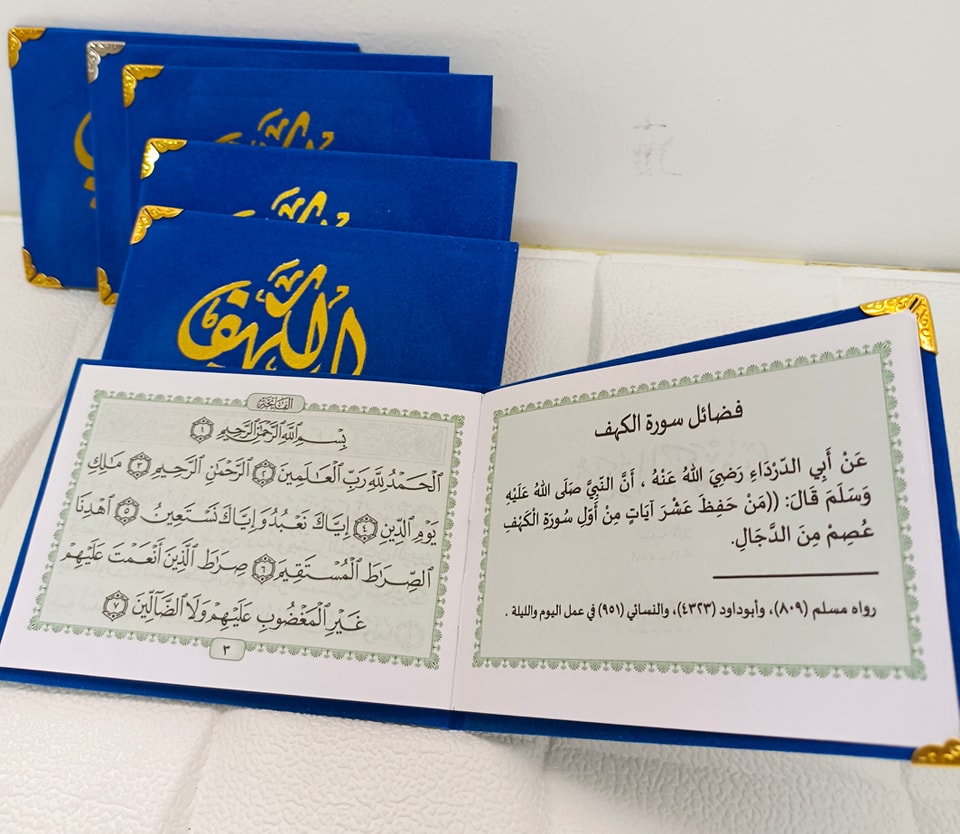 الكهف
فضائل سورة الكهف
عَنْ أَبِي الدَّرْدَاءِ رَضِيَ اللهُ عَنْهُ ، أَنَّ النَّبِيَّ صَلَّى اللهُ عَلَيْهِ
وَسَلَّمَ قَالَ: ((مَنْ حَفِظَ عَشْرَ آيَاتٍ مِنْ أَوَّلِ سُورَةِ الْكَهْفِ
عُصِمَ مِنَ الدَّجَالِ.
رواه مسلم (٨٠٩)، وأبوداود (٤٣٢٣)، والنسائي (٩٥١) في عمل اليوم والليلة .
الفاتحة
بِسْمِ ٱللَّهِ ٱلرَّحْمَٰنِ ٱلرَّحِيمِ ١
ٱلْحَمْدُ لِلَّهِ رَبِّ ٱلْعَٰلَمِينَ ٢ ٱلرَّحْمَٰنِ ٱلرَّحِيمِ ٣ مَٰلِكِ
يَوْمِ ٱلدِّينِ ٤ إِيَّاكَ نَعْبُدُ وَإِيَّاكَ نَسْتَعِينُ ٥ ٱهْدِنَا
ٱلصِّرَٰطَ ٱلْمُسْتَقِيمَ ٦ صِرَٰطَ ٱلَّذِينَ أَنْعَمْتَ عَلَيْهِمْ
غَيْرِ ٱلْمَغْضُوبِ عَلَيْهِمْ وَلَا ٱلضَّآلِّينَ ٧
٣